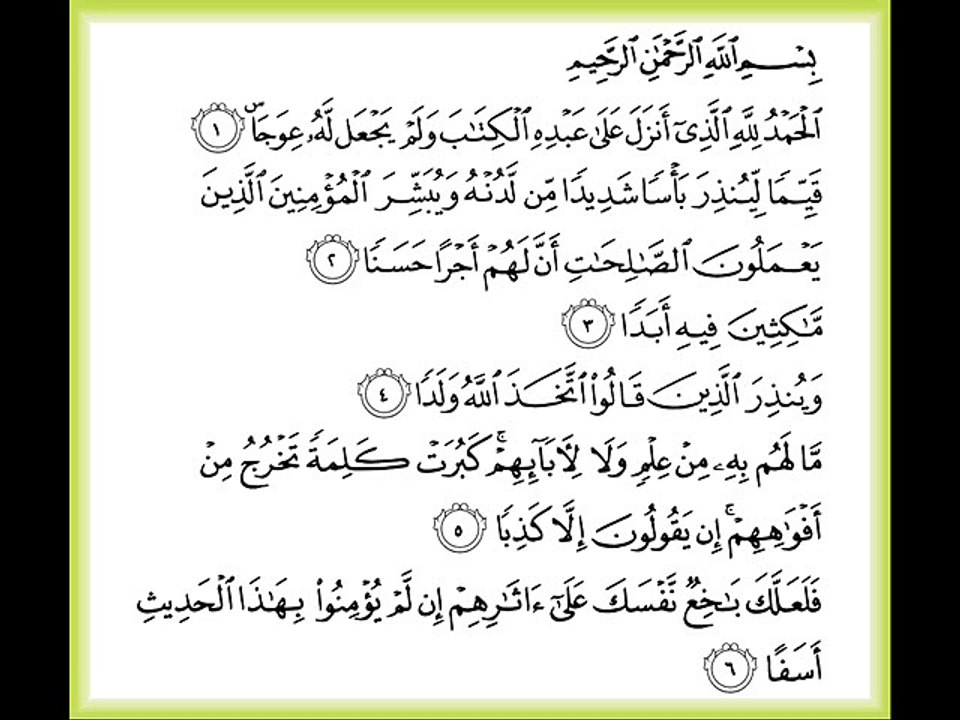 بِسْمِ ٱللَّهِ ٱلرَّحْمَٰنِ ٱلرَّحِيمِ
ٱلْحَمْدُ لِلَّهِ ٱلَّذِىٓ أَنزَلَ عَلَىٰ عَبْدِهِ ٱلْكِتَٰبَ وَلَمْ يَجْعَل لَّهُۥ عِوَجَاۜ ١
قَيِّمًا لِّيُنذِرَ بَأْسًا شَدِيدًا مِّن لَّدُنْهُ وَيُبَشِّرَ ٱلْمُؤْمِنِينَ ٱلَّذِينَ
يَعْمَلُونَ ٱلصَّٰلِحَٰتِ أَنَّ لَهُمْ أَجْرًا حَسَنًا ٢
مَّٰكِثِينَ فِيهِ أَبَدًا ٣
وَيُنذِرَ ٱلَّذِينَ قَالُوا۟ ٱتَّخَذَ ٱللَّهُ وَلَدًا ٤
مَّا لَهُم بِهِۦ مِنْ عِلْمٍ وَلَا لِأَبَآئِهِمْ ۚ كَبُرَتْ كَلِمَةً تَخْرُجُ مِنْ
أَفْوَٰهِهِمْ ۚ إِن يَقُولُونَ إِلَّا كَذِبًا ٥
فَلَعَلَّكَ بَٰخِعٌ نَّفْسَكَ عَلَىٰٓ ءَاثَٰرِهِمْ إِن لَّمْ يُؤْمِنُوا۟ بِهَٰذَا ٱلْحَدِيثِ
أَسَفًا ٦